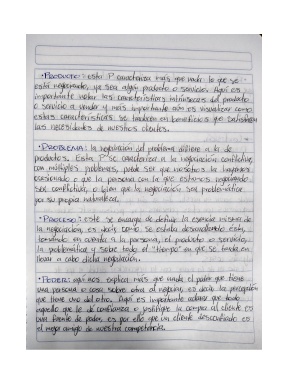 ·PRODUCTO: esta P caracteriza más que nada lo que se
está negociando, ya sea algún producto o servicio. Aquí es
importante notar las características intrínsecas del producto
o servicio a vender y más importante aún es visualizar como
estas características se traducen en beneficios que satisfacen
las necesidades de nuestros clientes.
·PROBLEMA: la negociación del problema difiere a la de
productos. Esta P se caracteriza a la negociación conflictiva
con múltiples problemas, puede ser que nosotros la hayamos
ocasionado o que la persona con la que estamos negociando
sea conflictiva, o bien que la negociación sea problemática
por su propia naturaleza.
·PROCESO: este se encarga de definir la esencia misma de
la negociación, es decir, como se estaba desarrollando esta,
tomando en cuenta a la persona, el producto o servicio,
la problemática y sobre todo el "tiempo" en que se tenda en
llevar a cabo dicha negociación.
·PODER: aquí nos explica más que nada el poder que tiene
una persona o cosa sobre otra al negociar, es decir la percepción
que tiene uno del otro. Aquí es importante aclarar que todo
aquello que le dé confianza o justifique la compra al cliente es
una fuente de poder, es por ello que un cliente desconfiado es
el mejor amigo de nuestra competencia.